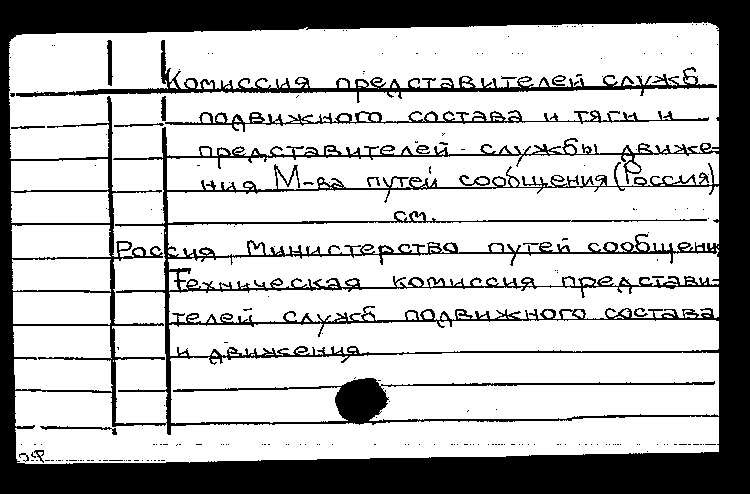 Комиссия представителей служб
подвижного состава и тяги и
представителей службы движе-
ния М-ва путей сообщения (Россия)
см.
Россия, Министерство путей сообщени
Техническая комиссия представи-
телей служб подвижного состава
и движения.